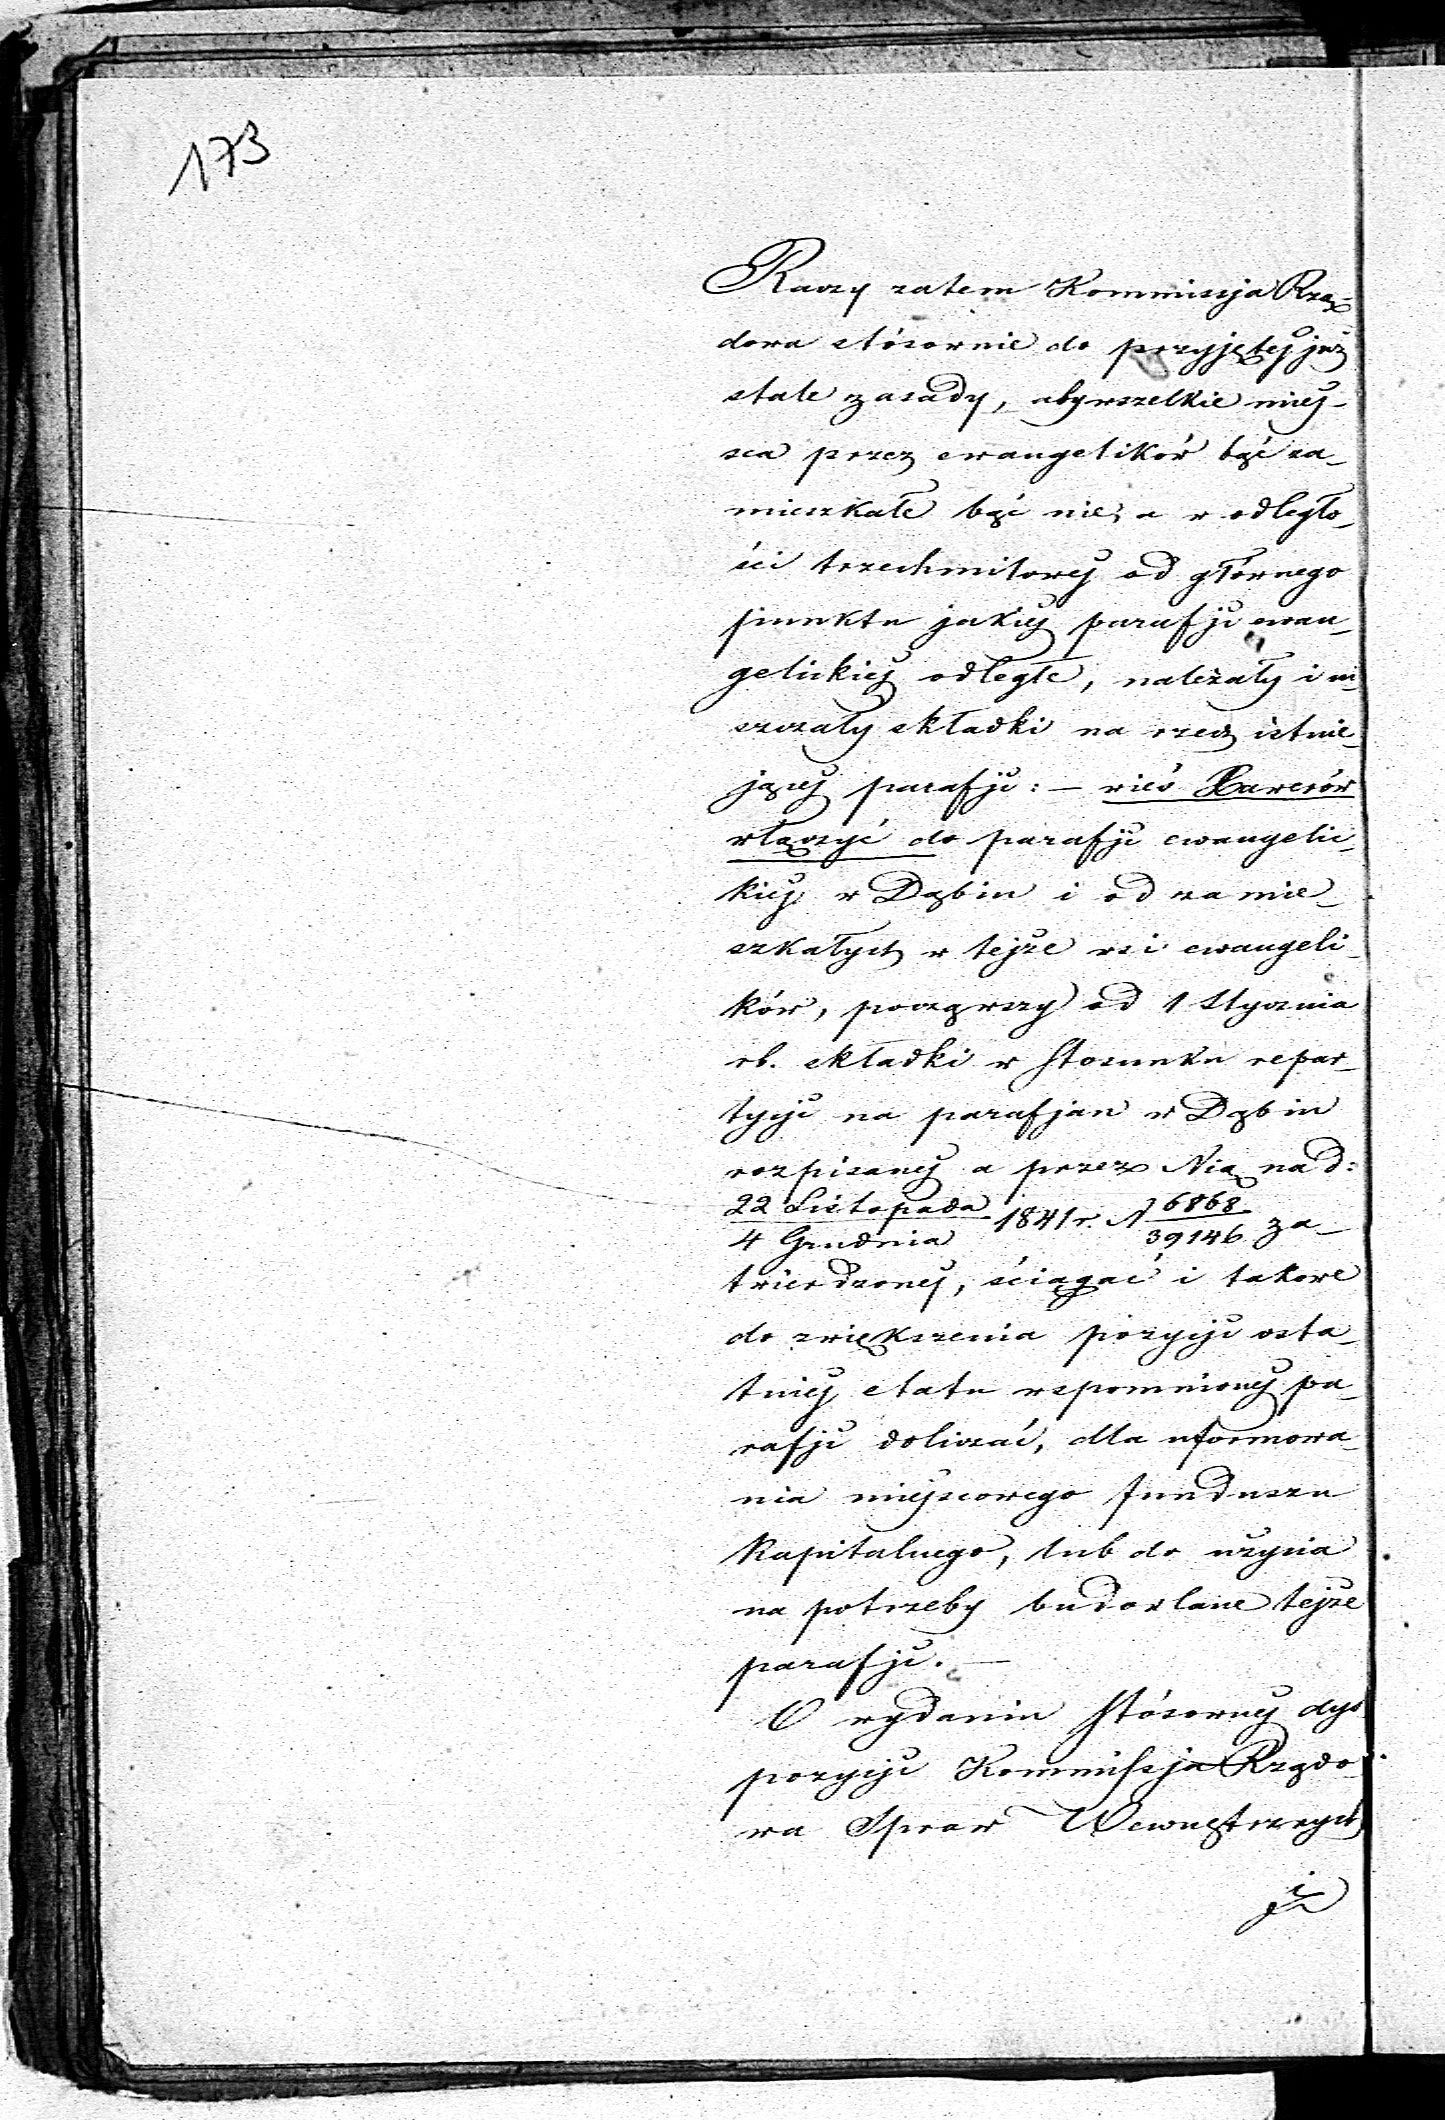 173
Raczy zatem Kommissja Rzą-
dowa stósownie do przyjętej już
stale zasady, aby wszelkie miej-
sca przez ewangelików bąć za-
mieszkałe bąć nie, a w odległo-
ści trzechmilowej od głównego
punktu jakiej parafji ewan-
gelickiej odległe, należały i ui-
szczały składki na rzecz istnie-
jącej parafji: – wieś Xawerów
włączyć do parafji ewangelic-
kiej w Dąbiu i od zamie-
szkałych w tejże wsi ewangeli-
ków, począwszy od 1 Stycznia
rb. składki w stosunku repar-
tycji na parafjan w Dąbiu
rozpisanej a przez Nią na d:
22 Listopada / 4 Grudnia 1841 r. N 6868 / 39146 za-
twierdzonej, ściągać i takowe
do zwiększenia pozycji osta-
tniej etatu wspomnionej pa-
rafji doliczać, dla uformowa-
nia miejscowego funduszu
Kapitalnego, lub do użycia
na potrzeby budowlane tejże
parafji. –
O wydanie stósownej dys
pozycji Kommissja Rządo-
wa Spraw Wewnętrznych
i